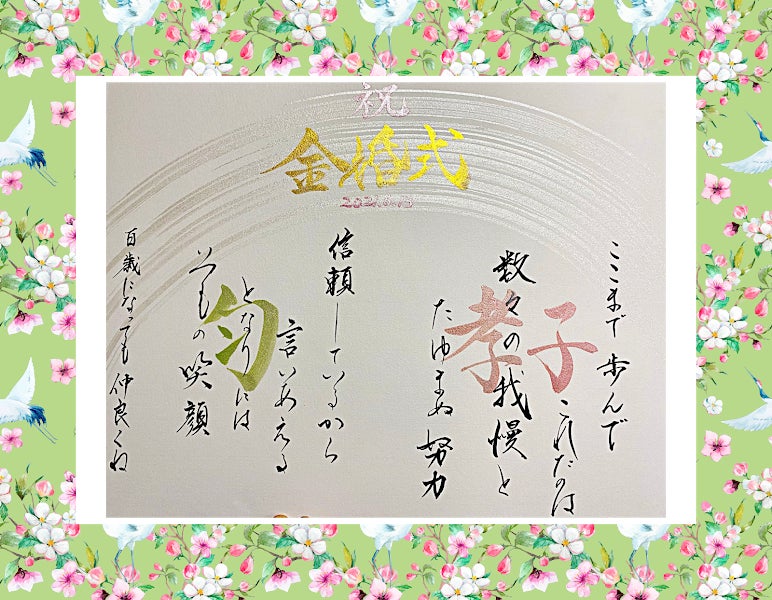 祝
金婚式
ここまで歩んで
これたのは
数々の我慢と
たゆまぬ努力
孝子
信頼しているから
言いあえる
となりには
いつもの笑顔
百歳になっても仲良くね